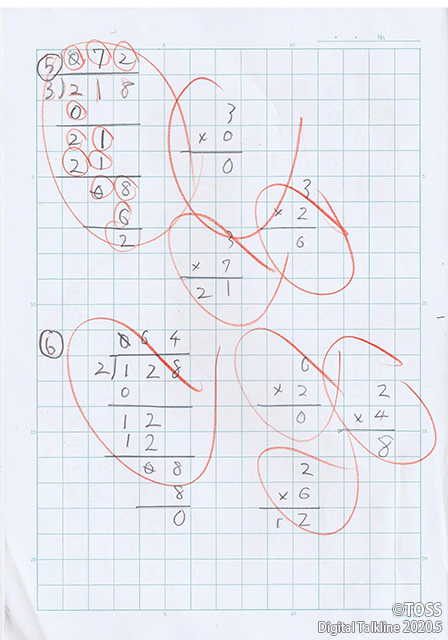 No.
⑤ 0 7 2
3)2 1 8
0
2 1
2 1
0 8
6
2
3
× 0
0
3
× 2
6
3
× 7
2 1
⑥ 0 6 4
2)1 2 8
0
1 2
1 2
0 8
8
0
0
× 2
0
2
× 4
8
2
× 6
1 2
©TOSS
Digital Talkline 2020.5